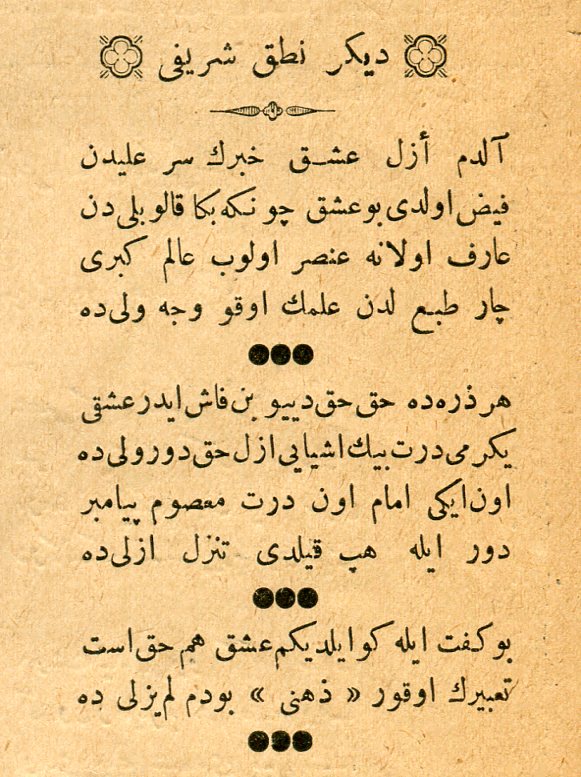 ديكر نطق شريفى
آلدم أزل عشق خبرك سر عليدن
فيض اولدى بو عشق چونكه بكا قالو بلى دن
عارف اولانه عنصر اولوب عالم كبرى
چار طبع لدن علمك اوقو وجه ولى ده
هر ذره ده حق حق دييو بن فاش ايدر عشقى
يكرمى درت بيك اشيايى ازل حق دور ولى ده
اون ايكى امام اون درت معصوم پيامبر
دور ايله هپ قيلدى تنزل ازلى ده
بو كفت ايله كو ايلديكم عشق هم حق است
تعبيرك اوقور « ذهنى » بودم لم يزلى ده